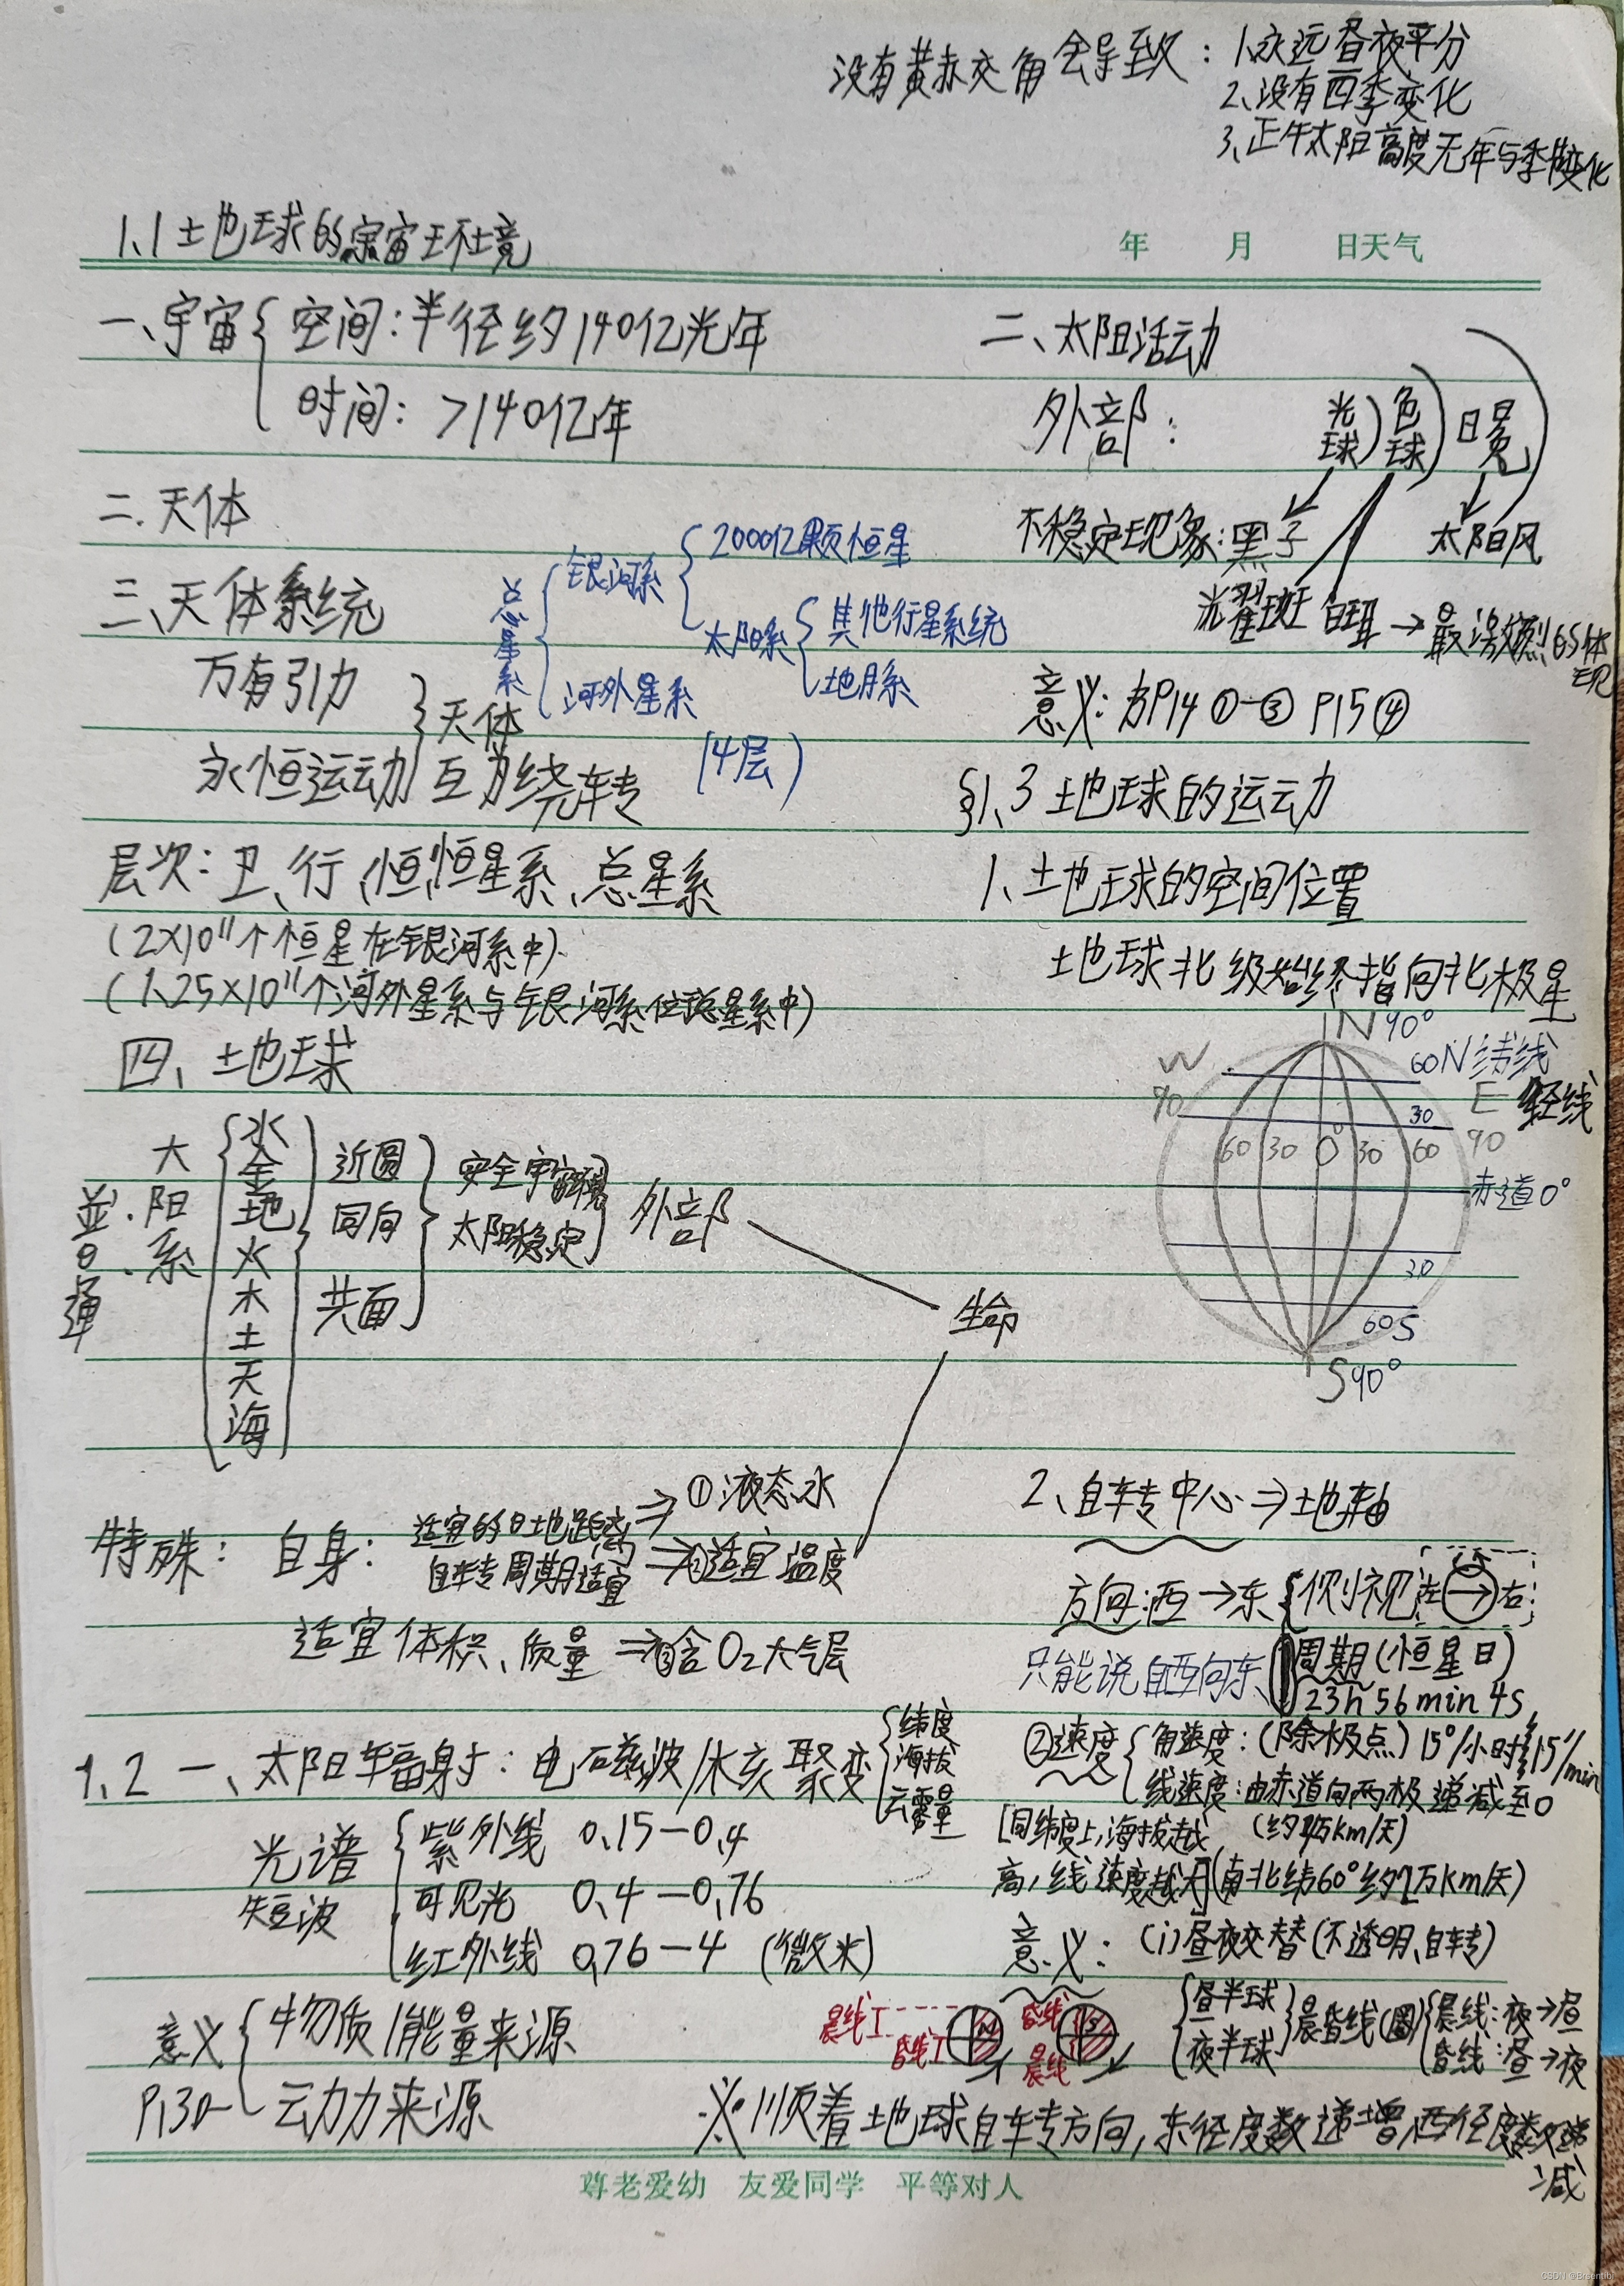 没有黄赤交角会导致：1、永远昼夜平分
2、没有四季变化
3、正午太阳高度无年与季变化
1.1 地球的宇宙环境
年 月 日天气
一、宇宙 空间：半径约140亿光年
时间：>140亿年
二.天体
三、天体系统
万有引力
永恒运动
天体
互为绕转
总星系
银河系
河外星系
2000亿颗恒星
太阳系
其他行星系统
地月系
(4层)
层次：卫、行、恒、恒星系、总星系
(2×10¹¹个恒星在银河系中)
(1.25×10¹¹个河外星系与银河系位于总星系中)
四、地球
太阳系
水金地火木土天海
近圆
同向
共面
安全宇宙环境
太阳稳定
外部
生命
特殊：自身：适宜的日地距离⇒①液态水
自转周期适宜⇒②适宜温度
适宜体积、质量⇒③含O₂大气层
1.2 一、太阳辐射：电磁波/核聚变
纬度
海拔
云量
光谱
短波
紫外线 0.15—0.4
可见光 0.4—0.76
红外线 0.76—4 (微米)
意义
P.30
物质/能量来源
动力来源
二、太阳活动
外部：光球)色球)日冕
不稳定现象：黑子
太阳风
光耀斑 日珥→最激烈的体现
意义：书P14①-③ P15④
§1.3 地球的运动
1、地球的空间位置
地球北级始终指向北极星
N 90°
W
60N 纬线
90
30
E 经线
60 30 0° 30 60 90
赤道0°
30
60S
S90°
2、自转中心⇒地轴
方向：西→东 侧视 左→右
只能说自西向东
周期(恒星日)
23h 56min 4s
②速度
角速度：(除极点) 15°/小时 15'/min
线速度：由赤道向两极递减至0
[同纬度上，海拔越
(约4万km/天)
高，线速度越大] (南北纬60°约2万km/天)
意义：(1)昼夜交替(不透明、自转)
晨线
昏线
N
昏线
晨线
S
昼半球
夜半球
晨昏线(圈)
晨线：夜→昼
昏线：昼→夜
※顺着地球自转方向，东经度数递增，西经度数递减
尊老爱幼 友爱同学 平等对人
CSDN @Brsentibi